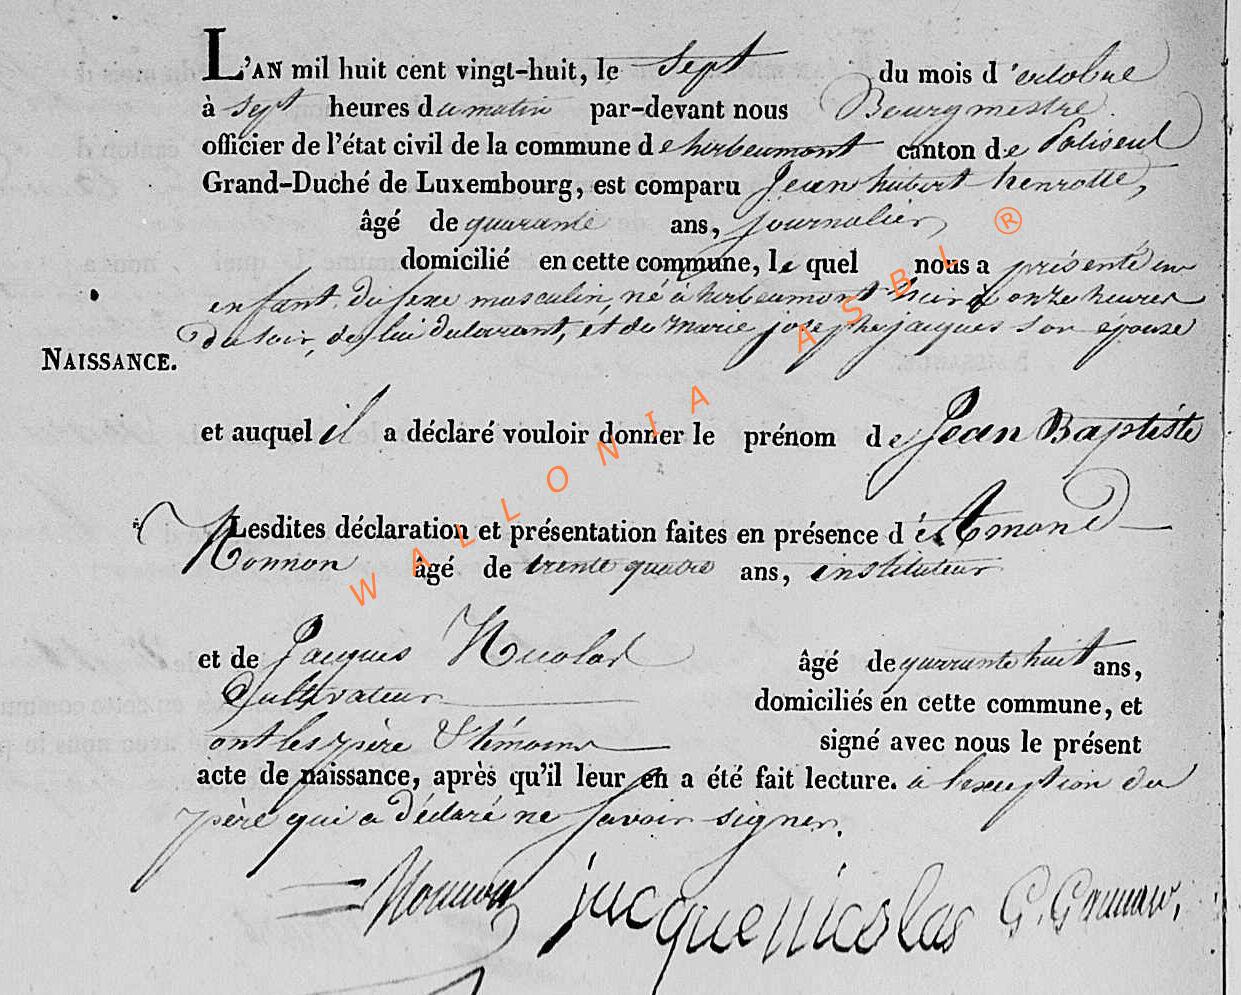 L'AN mil huit cent vingt-huit, le Sept du mois d'octobre
à Sept heures du matin par-devant nous Bourgmestre
officier de l'état civil de la commune de herbeumont canton de Paliseul
Grand-Duché de Luxembourg, est comparu Jean hubert henrotte,
âgé de quarante ans, journalier,
domicilié en cette commune, le quel nous a présenté un
enfant du sexe masculin, né à herbeumont hier à onze heures
du soir, de lui déclarant, et de Marie josephe jacques son épouse
NAISSANCE.
et auquel il a déclaré vouloir donner le prénom de Jean Baptiste
Lesdites déclaration et présentation faites en présence d'Amand
Nonnon âgé de trente quatre ans, instituteur
et de Jacques Nicolas âgé de quarrante huit ans,
Cultivateur domiciliés en cette commune, et
ont les père & témoins signé avec nous le présent
acte de naissance, après qu'il leur en a été fait lecture. à l'exception du
père qui a déclaré ne savoir signer.
Nonnon jacque nicolas G.
WALLONIA ASBL ®